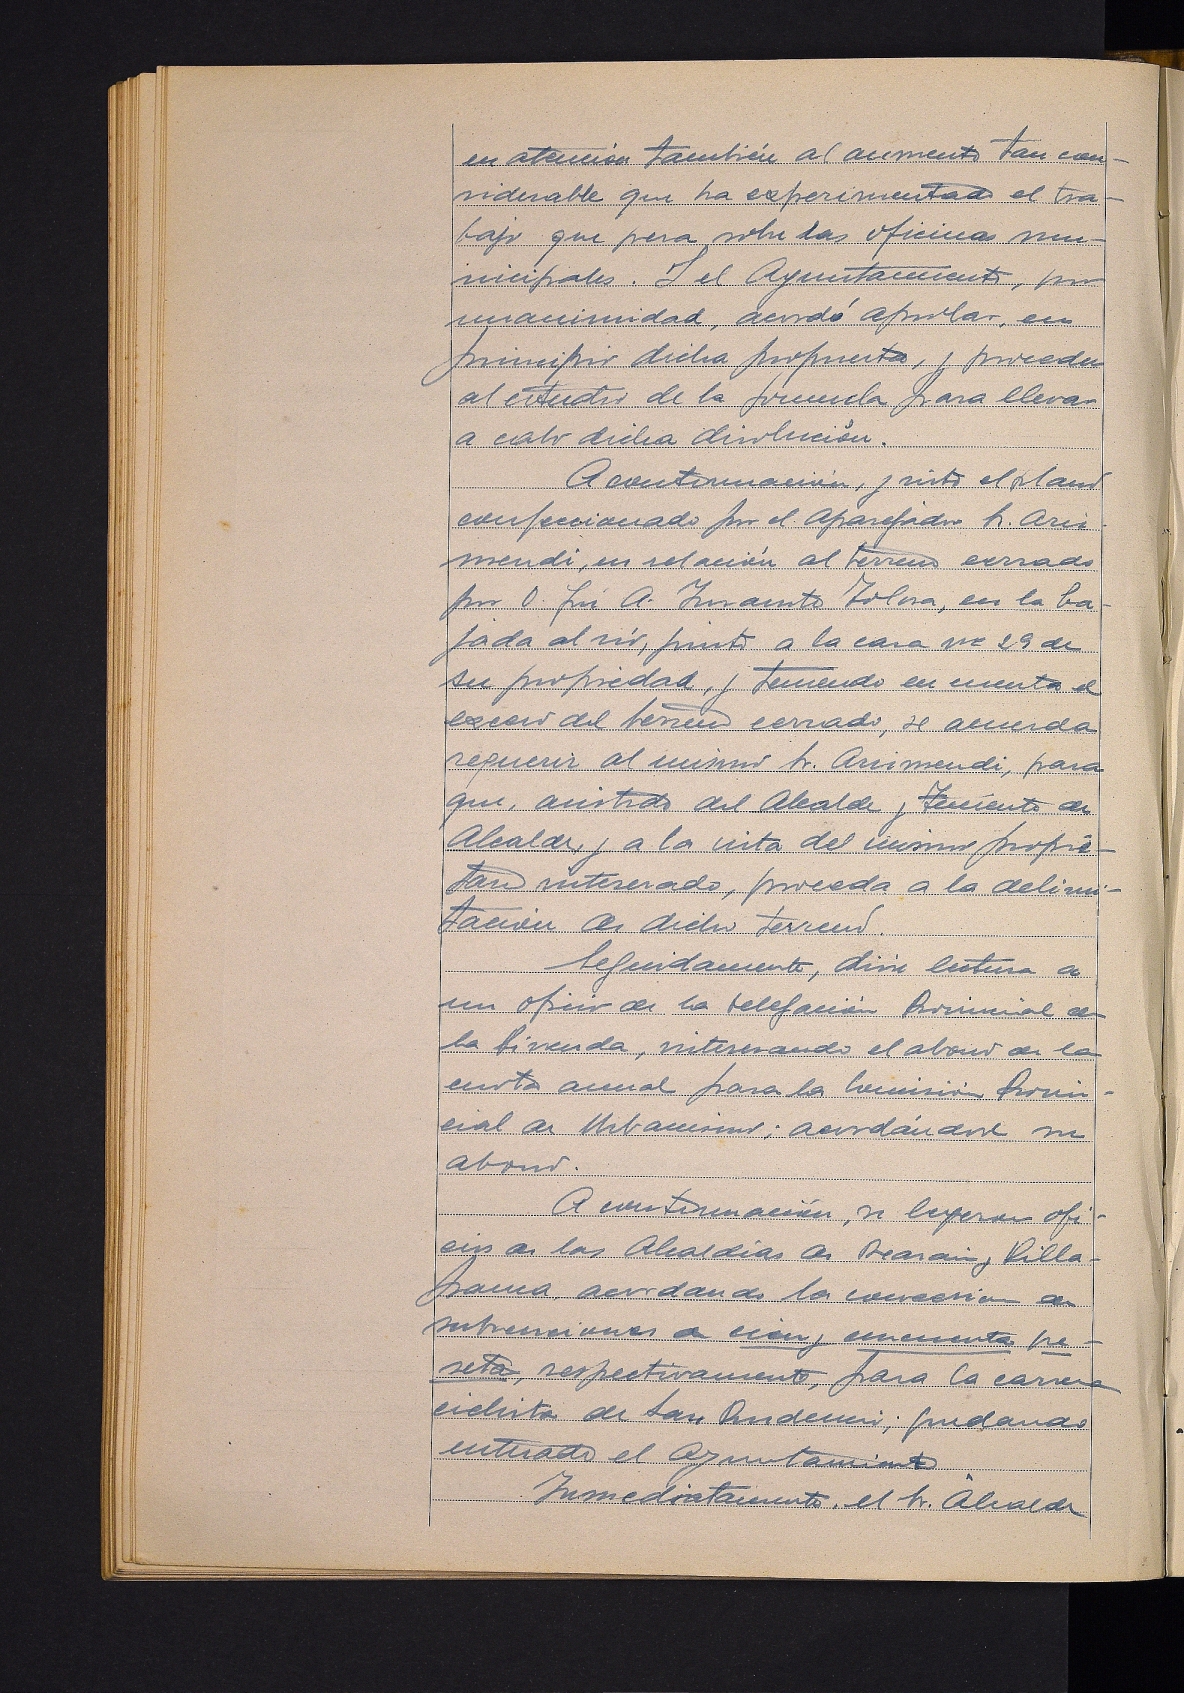 en atención también al aumento tan con-
siderable que ha experimentado el tra-
bajo que pesa sobre las oficinas mu-
nicipales. Y el Ayuntamiento, por
unanimidad, acordó aprobar, en
principio dicha propuesta, y proceder
al estudio de la fórmula para llevar
a cabo dicha disolución.
A continuación, visto el plano
confeccionado por el Aparejador Sr. Aris-
mendi, en relación al terreno cerrado
por D. José A. Tolosa, en la ba-
jada al río, junto a la casa nº 29 de
su propiedad, y teniendo en cuenta el
exceso del terreno cerrado, se acuerda
requerir al mismo Sr. Arismendi, para
que, asistido del Alcalde y Teniente de
Alcalde, y a la vista del mismo propie-
tario interesado, proceda a la delimi-
tación de dicho terreno.
Seguidamente, dióse lectura a
un oficio de la Delegación Provincial de
la Vivienda, interesando el abono de la
cuota anual para la Comisión Provin-
cial de Urbanismo; acordándose su
abono.
A continuación, se leyeron ofi-
cios de las Alcaldías de Beasain y Villa-
franca, acordando la concesión de
subvenciones de cien y cincuenta pe-
setas, respectivamente, para la carrera
ciclista de San Prudencio; quedando
enterado el Ayuntamiento
Inmediatamente, el Sr. Alcalde